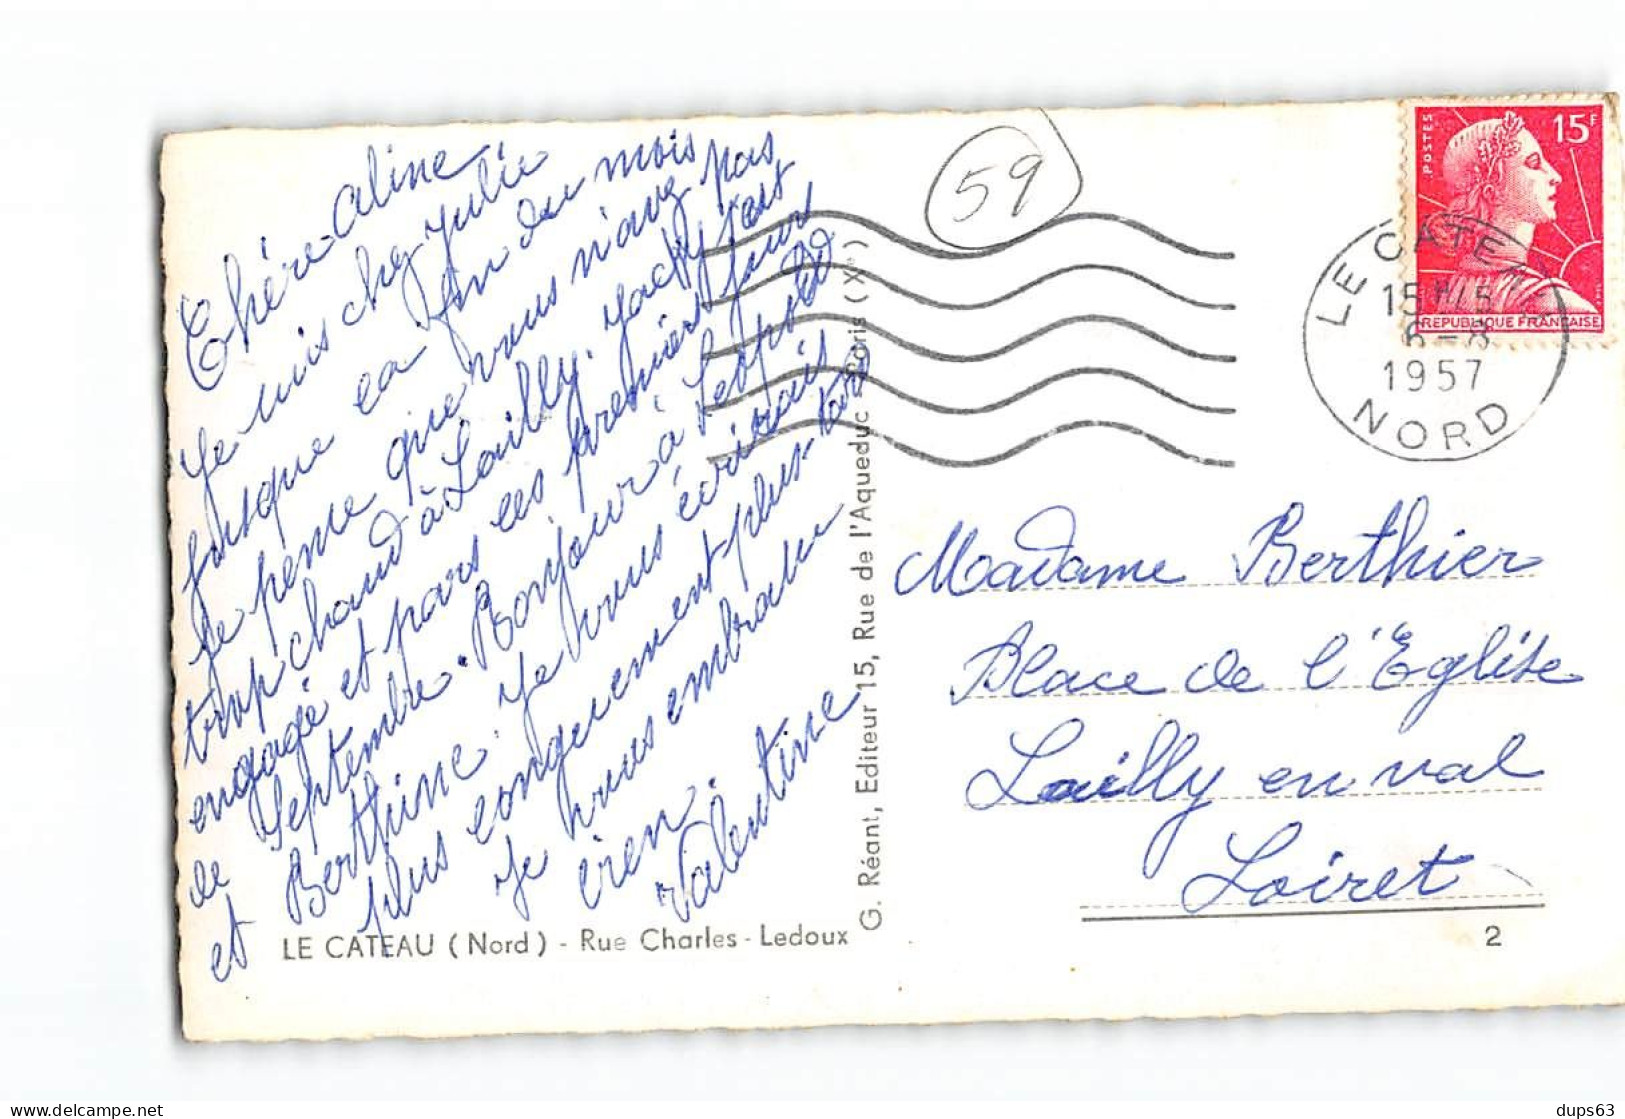 Chère Aline
Je suis chez Julie
jusque la fin du mois
Je pense que vous n'avez pas
trop chaud à Lailly. Jacky s'est
engagé et pars les premiers jours
de Septembre. Bonjour à Léopold
et Berthine. Je vous écrirait
plus longuement plus tard
Je vous embrasse
bien.
Valentine
LE CATEAU (Nord) - Rue Charles-Ledoux
G. Réant, Editeur 15, Rue de l'Aqueduc - Paris (Xe)
59
POSTES
15F
REPUBLIQUE FRANÇAISE
LE CATEAU
15H15
6-8
1957
NORD
Madame Berthier
Place de l'Eglise
Lailly en val
Loiret
2
dups63